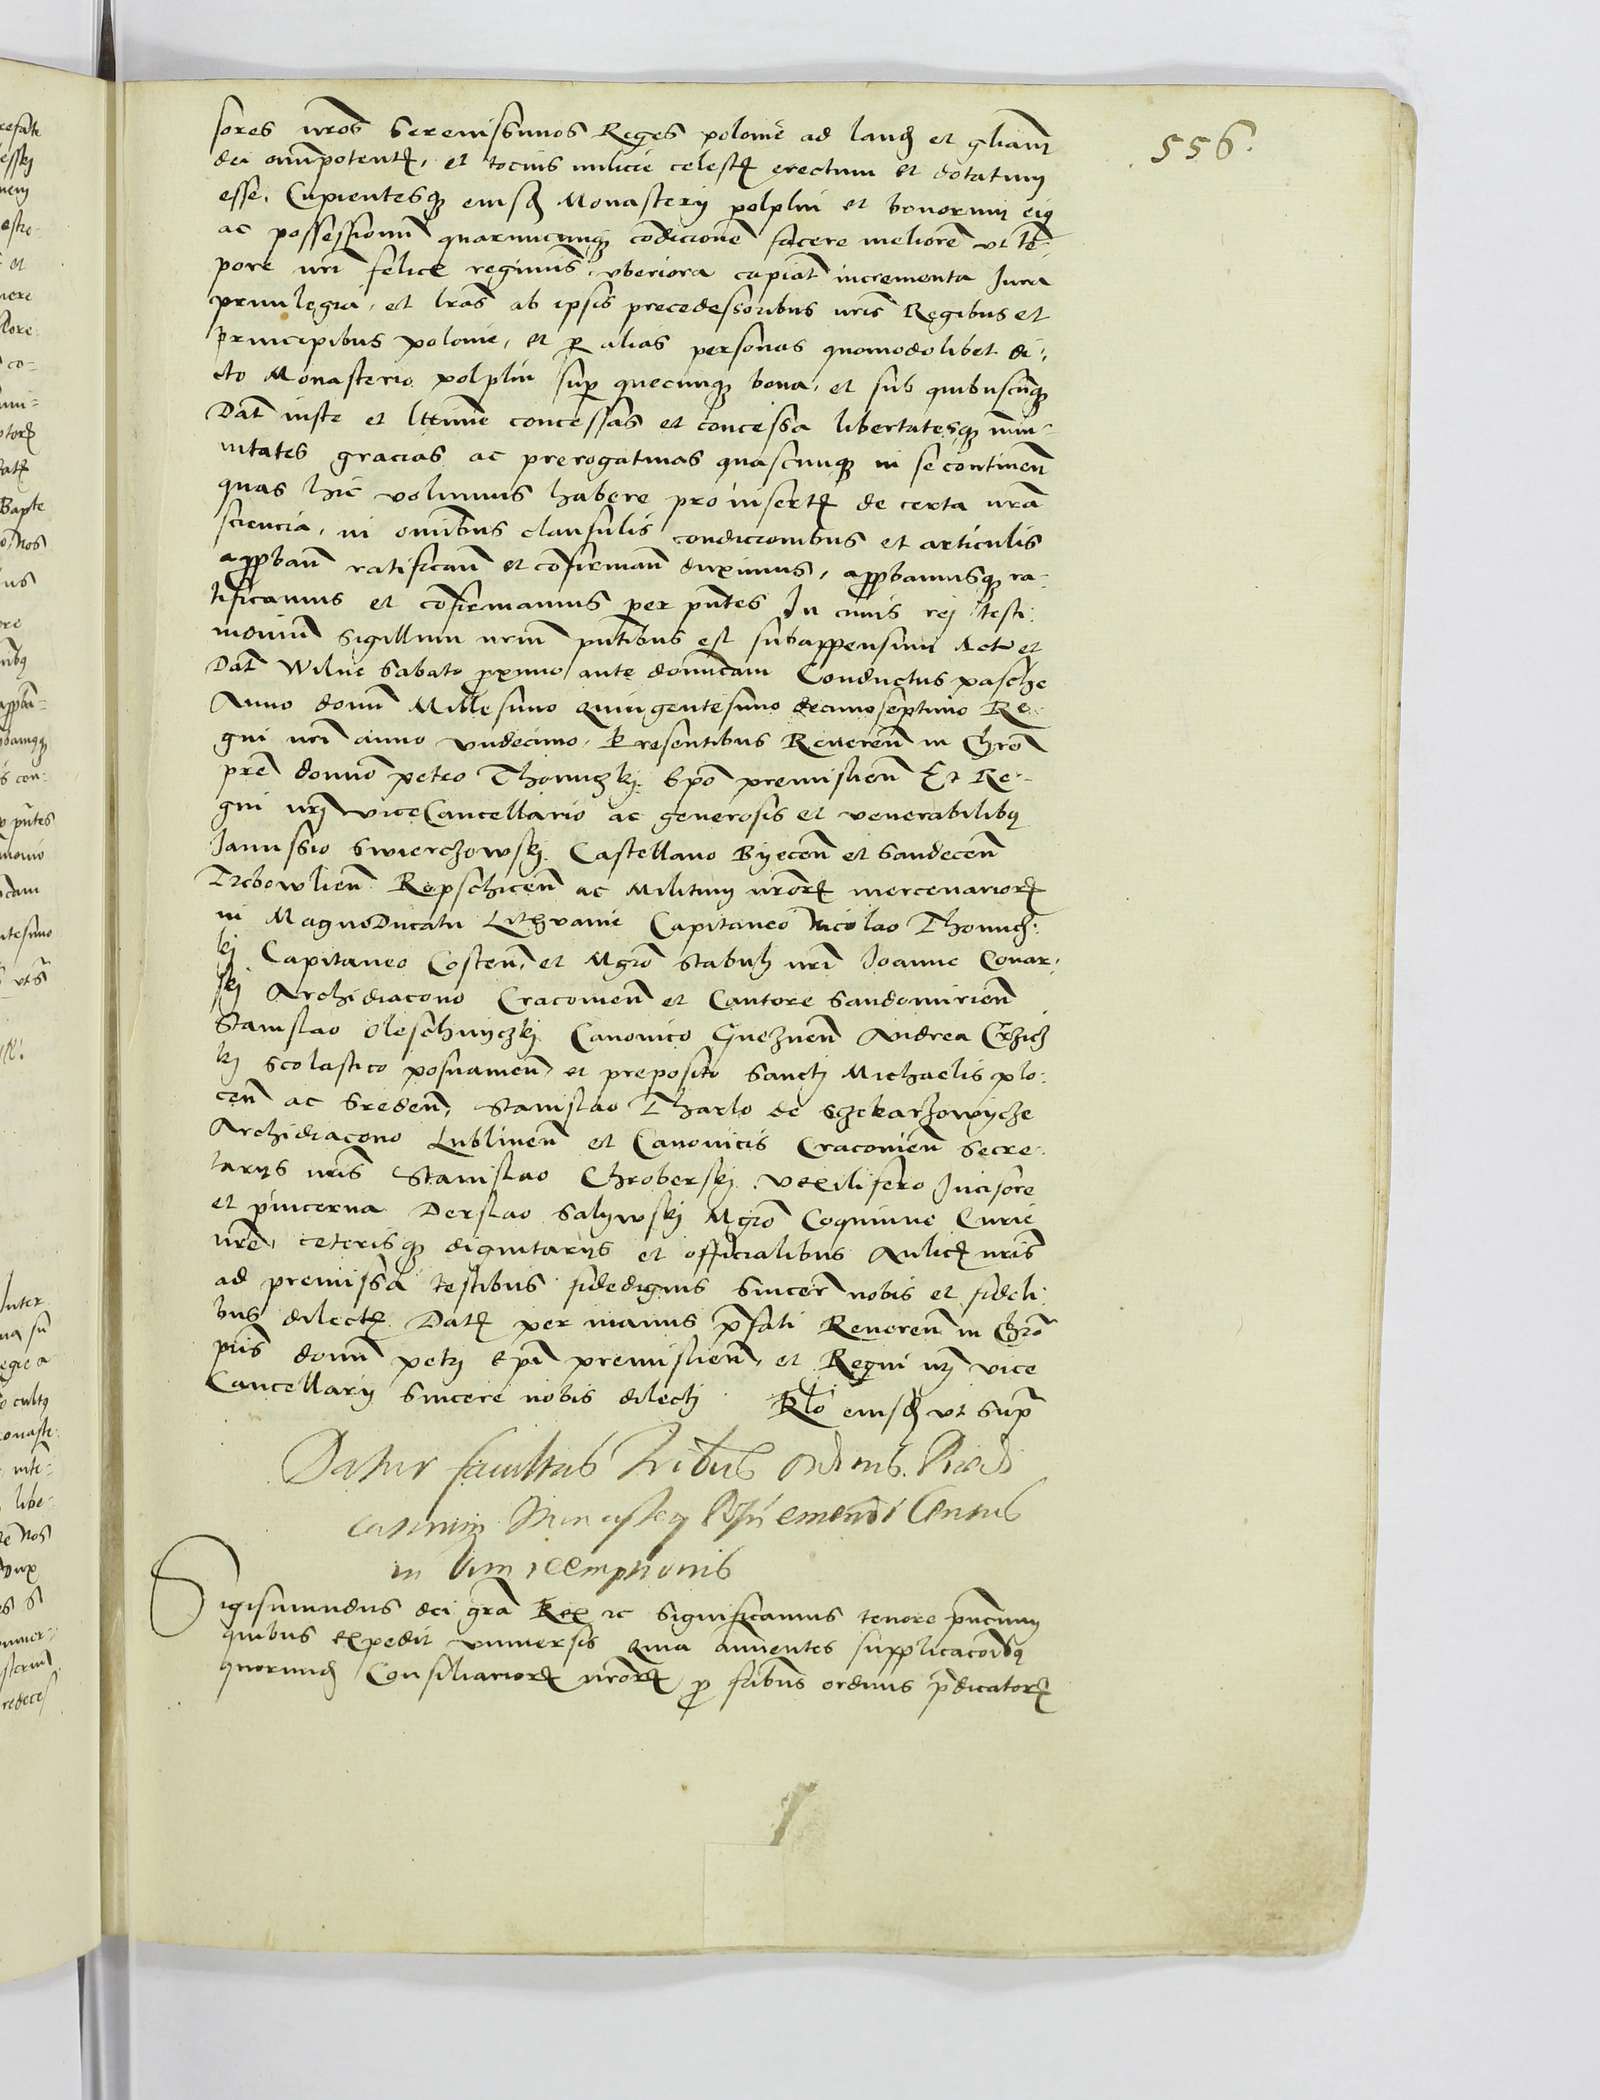 556.
sores nros Serenissimos Reges polonie ad laudẽ et gliam
dei omnipotentis, et tocius milicie celestis erectum et dotatum
esse. Cupientesq eiusdẽ Monasterij polplin et bonorum eiq
ac possessionũ quarumcunq condicionẽ facere meliorẽ ut tẽ-
pore nri felicis regiminis, uberiora capiãt incrementa Jura
privilegia, et lras ab ipsis precedessoribus nris Regibus et
principibus polonie, et p alias personas quomodolibet di-
cto Monasterio polplin sup quecunq bona, et sub quibuscũq
Dat iuste et lttime concessas et concessa libertatesq immu-
nitates gracias ac prerogatiuas quascunq in se continen
quas hic volumus habere pro insertis de certa nra
sciencia, in omibus clausulis condicionibus et articulis
approban ratifican et cõfirman duximus, approbamusq ra-
tificamus et cõfirmamus per pntes Jn cuius rej testi-
monium sigillum nrum pntibus est subappensum Actu et
Dat Wilne Sabato proximo ante dominicam Conductus pasche
Anno domini Millesimo quingentesimo decimoseptimo Re-
gni nri anno undecimo. Presentibus Reveren in Chro
pre domno petro Thomiczkj Epo premislien Et Re-
gni nrj viceCancellario ac generosis et venerabilibq
Janussio Swierczowskj Castellano Byecen et Sandecen
Trebowlien Ropschicen ac Militum nrorẽ mercenariorẽ
in MagnoDucatu Lithvanie Capitaneo Nicolao Thomicz-
kj Capitaneo Costen, et Mgro Stabulj nri Joanne Conar-
skj Archidiacono Cracovien et Cantore Sandomirien
Stanislao Oleschnyczkj Canonico Gneznen Andrea Crzicz
kj Scolastico posnanien, et preposito Sanctj Michaelis plo-
cen ac Sreden, Stanislao Tharlo de Sczekarzowycze
Archidiacono Lublinen et Canonicis Cracovien Secre-
tarijs nris Stanislao Chroberskj vexilifero Jncisore
et pincerna Derslao Salywskj Mgro Coquinne Curie
nre, ceterisq dignitarijs et officialibus Aulicis nris
ad premissa testibus fidedignis sincer nobis et fideli-
bus dilectis Datis per manus pfati Reveren in Chro
pris domni petrj Epi premislien, et Regni nrj vice
Cancellarij sincere nobis dilectj Rlo eiusdẽ ut supra
Datur facultas fribus ordinis Predi
catorum Monastery emendi Census
in vim reemptionis
Sigismundus dei gra Rex ec Significamus tenore pncium
quibus expedit universis Quia annuentes supplicacoibq
quorundẽ Consiliariorẽ nrorẽ p fribus ordinis pdicatorẽ